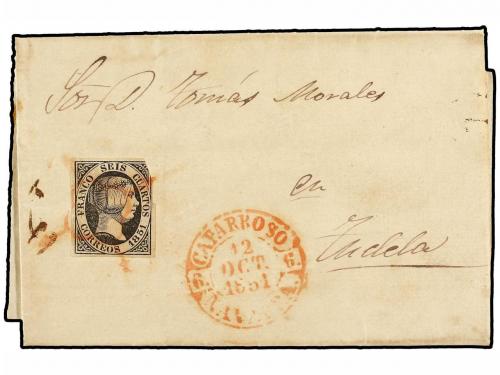 Sor. D. Tomás Morales
en
Tudela
FRANCO SEIS CUARTOS
CORREOS 1851
CAPARROSO
12
OCT.
1851